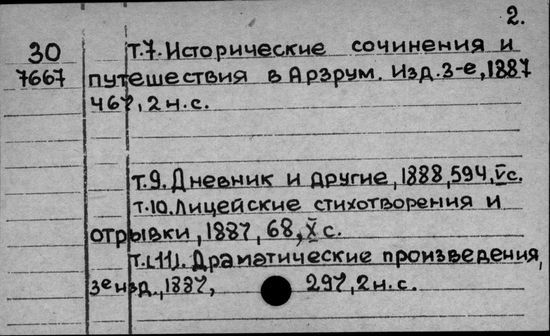 2.
30 т.7. Исторические сочинения и
7667 путешествия в Арзрум. Изд. 3-е, 1887
467, 2 н.с.
т.9. Дневник и другие, 1888, 594, V с.
т.10. Лицейские стихотворения и
отрывки, 1887, 68, X с.
т.[11]. Драматические произведения,
3е изд., 1887, 297, 2 н.с.